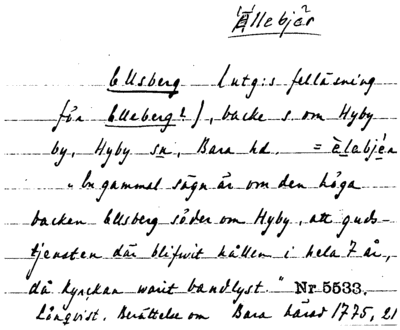 Ällebjär
Ellsberg (utg:s felläsning
för Elleberg?), backe s om Hyby
by, Hyby sn, Bara hd. = èlabjén
"En gammal sägn är om den höga
backen Ellsberg söder om Hyby, att guds-
tjensten där blifwit hållen i hela 7 år,
då kyrckan warit bandlyst." Nr 5533.
Lönqvist. Berättelse om Bara härad 1775, 21